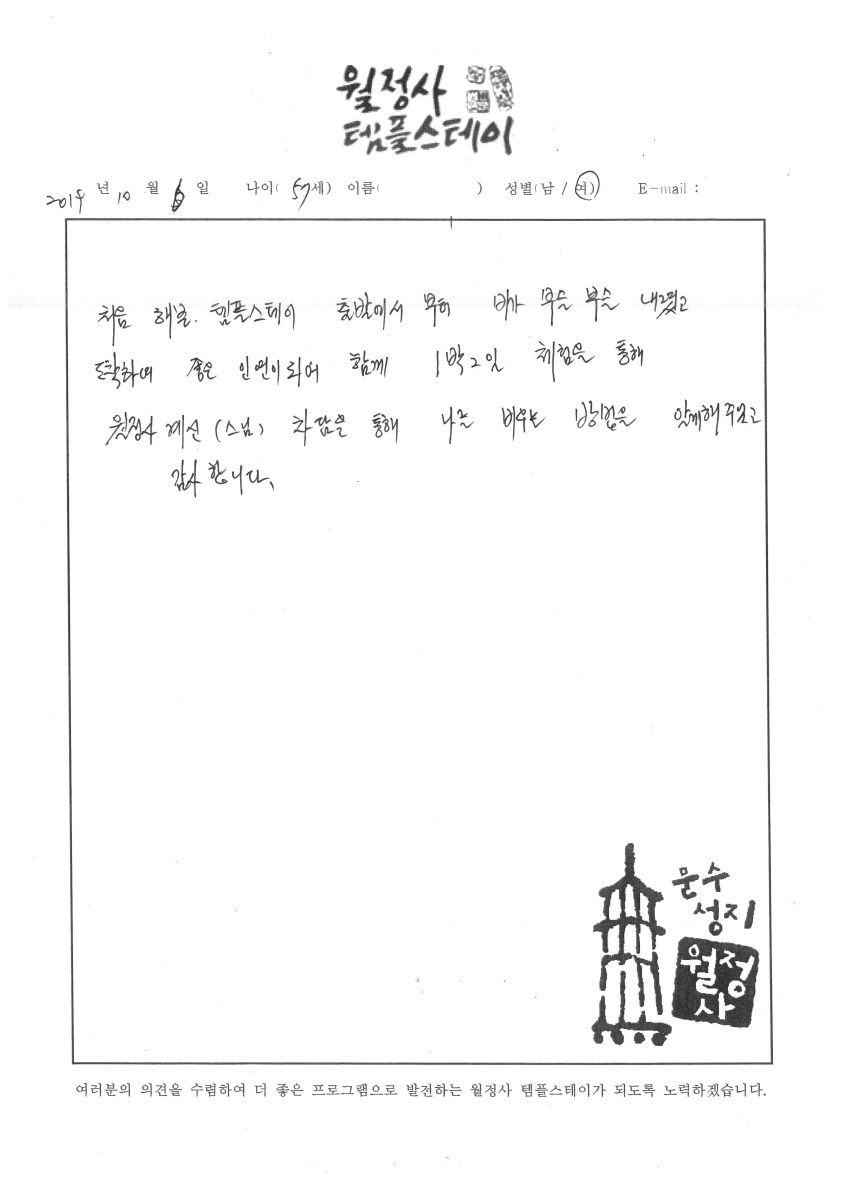 월정사
템플스테이
2019년 10월 6일 나이( 57세) 이름( ) 성별(남 / 여) E-mail :
처음 해본. 템플스테이 출발에서 부터 비가 부슬 부슬 내렸고
도착하여 좋은 인연이되어 함께 1박2일 체험을 통해
월정사 계신 (스님) 차담을 통해 나를 비우는 방법을 알게해주시고
감사합니다.
문수
성지
월정
사
여러분의 의견을 수렴하여 더 좋은 프로그램으로 발전하는 월정사 템플스테이가 되도록 노력하겠습니다.